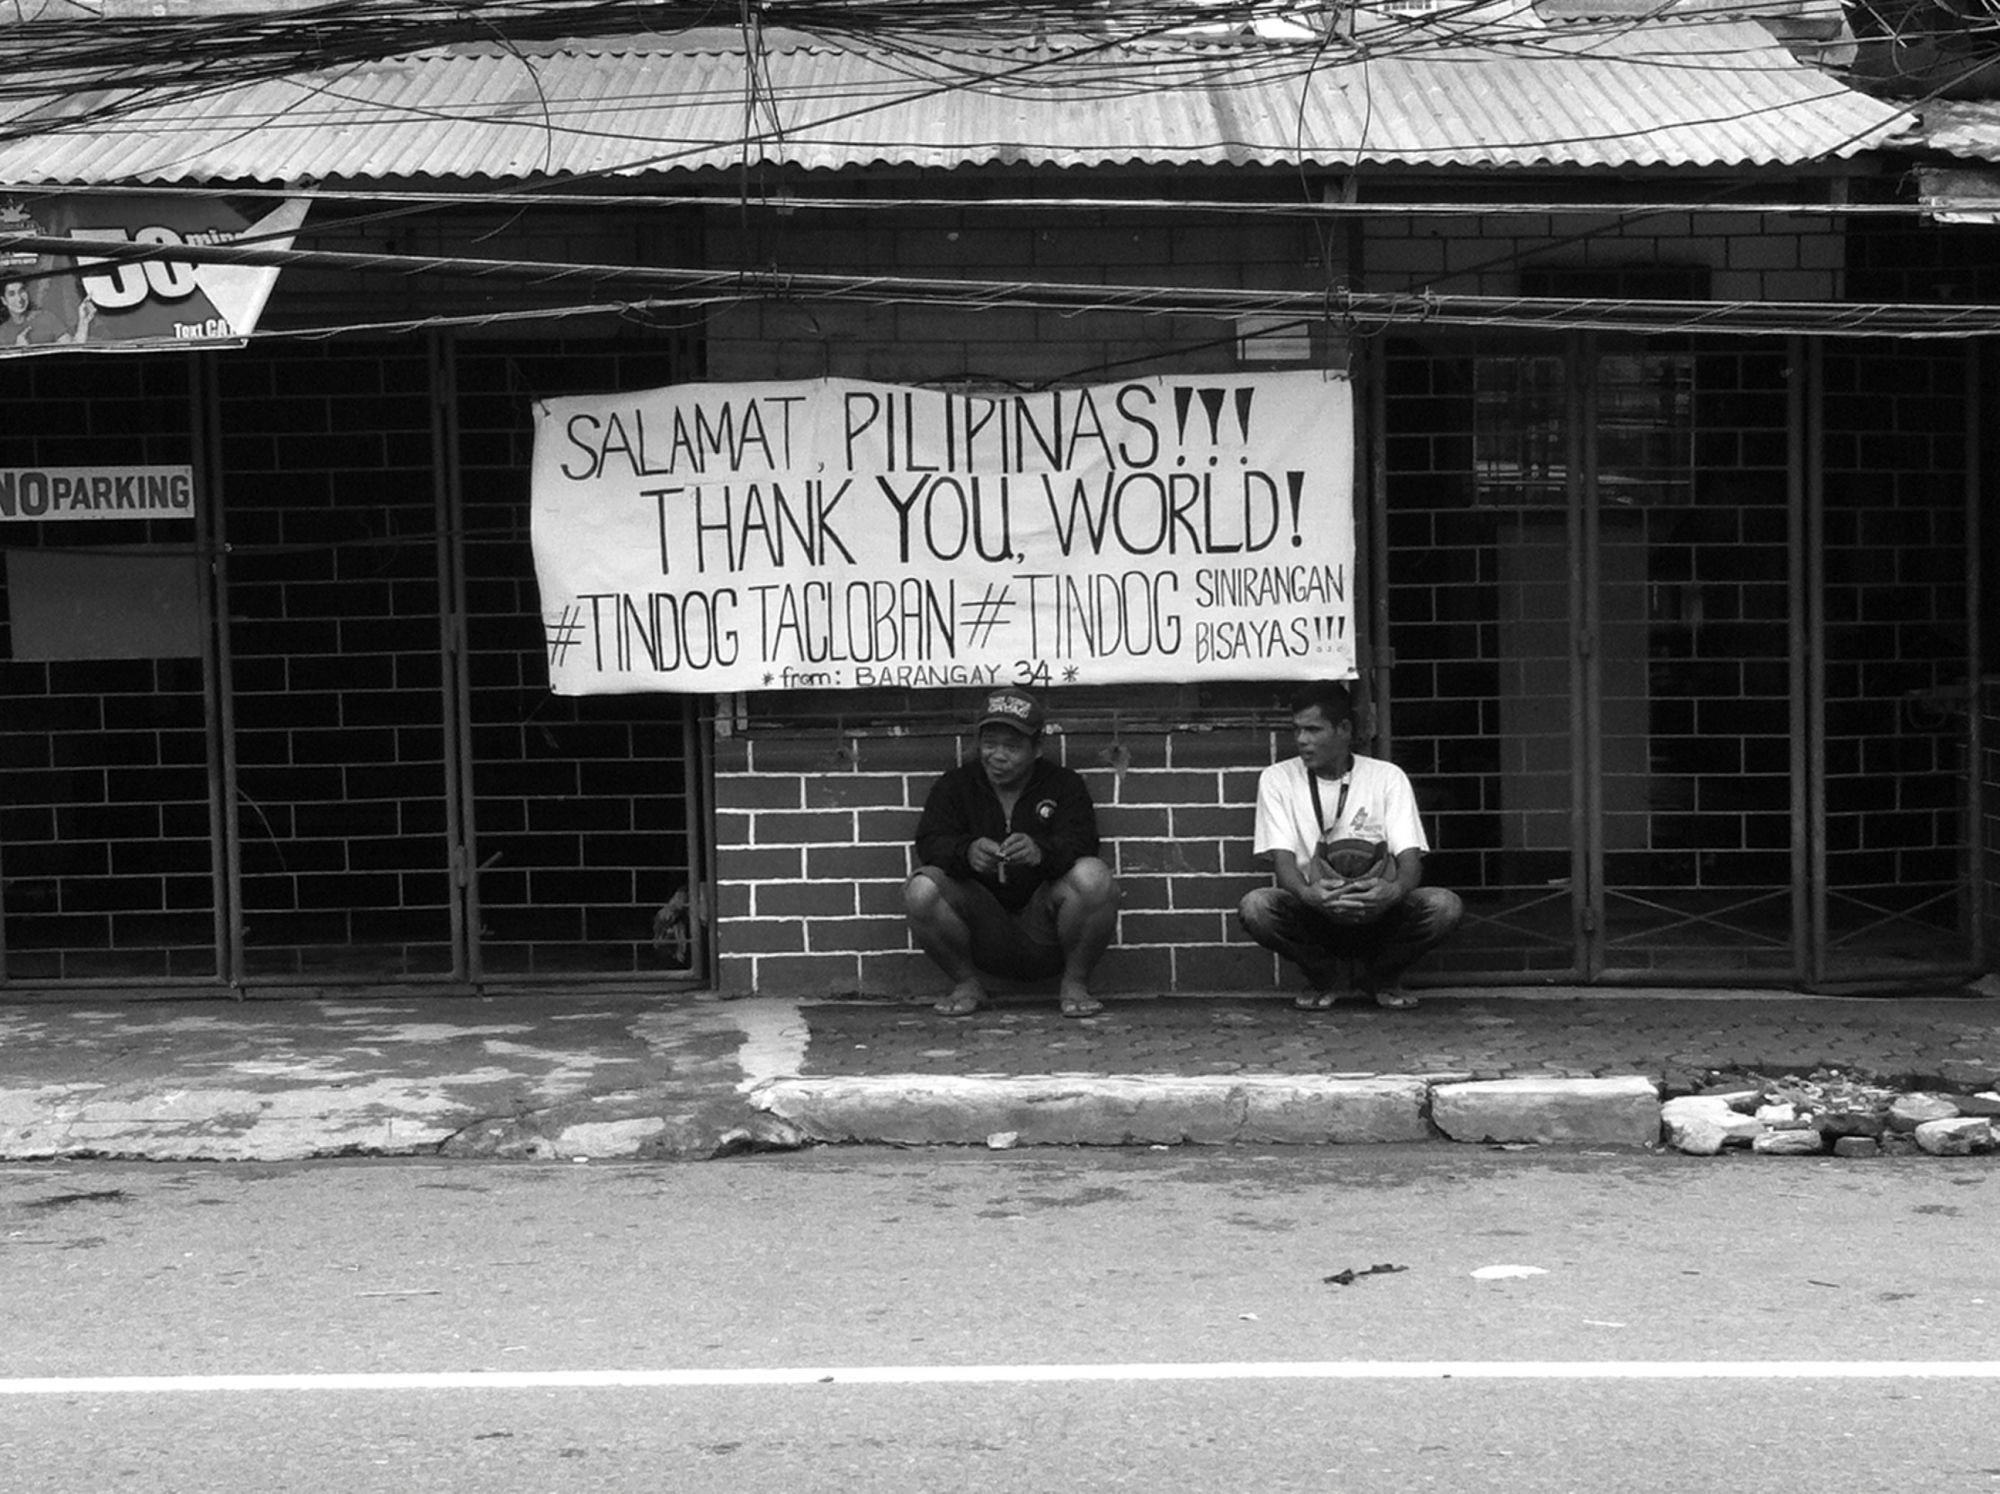 50 mins
Text CAT
NO PARKING
SALAMAT, PILIPINAS!!!
THANK YOU, WORLD!
#TINDOG TACLOBAN #TINDOG SINIRANGAN
BISAYAS!!!
*from: BARANGAY 34*